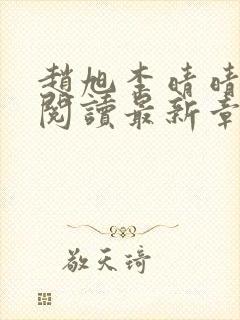 趙旭李晴晴
閱讀最新章
敬天琦